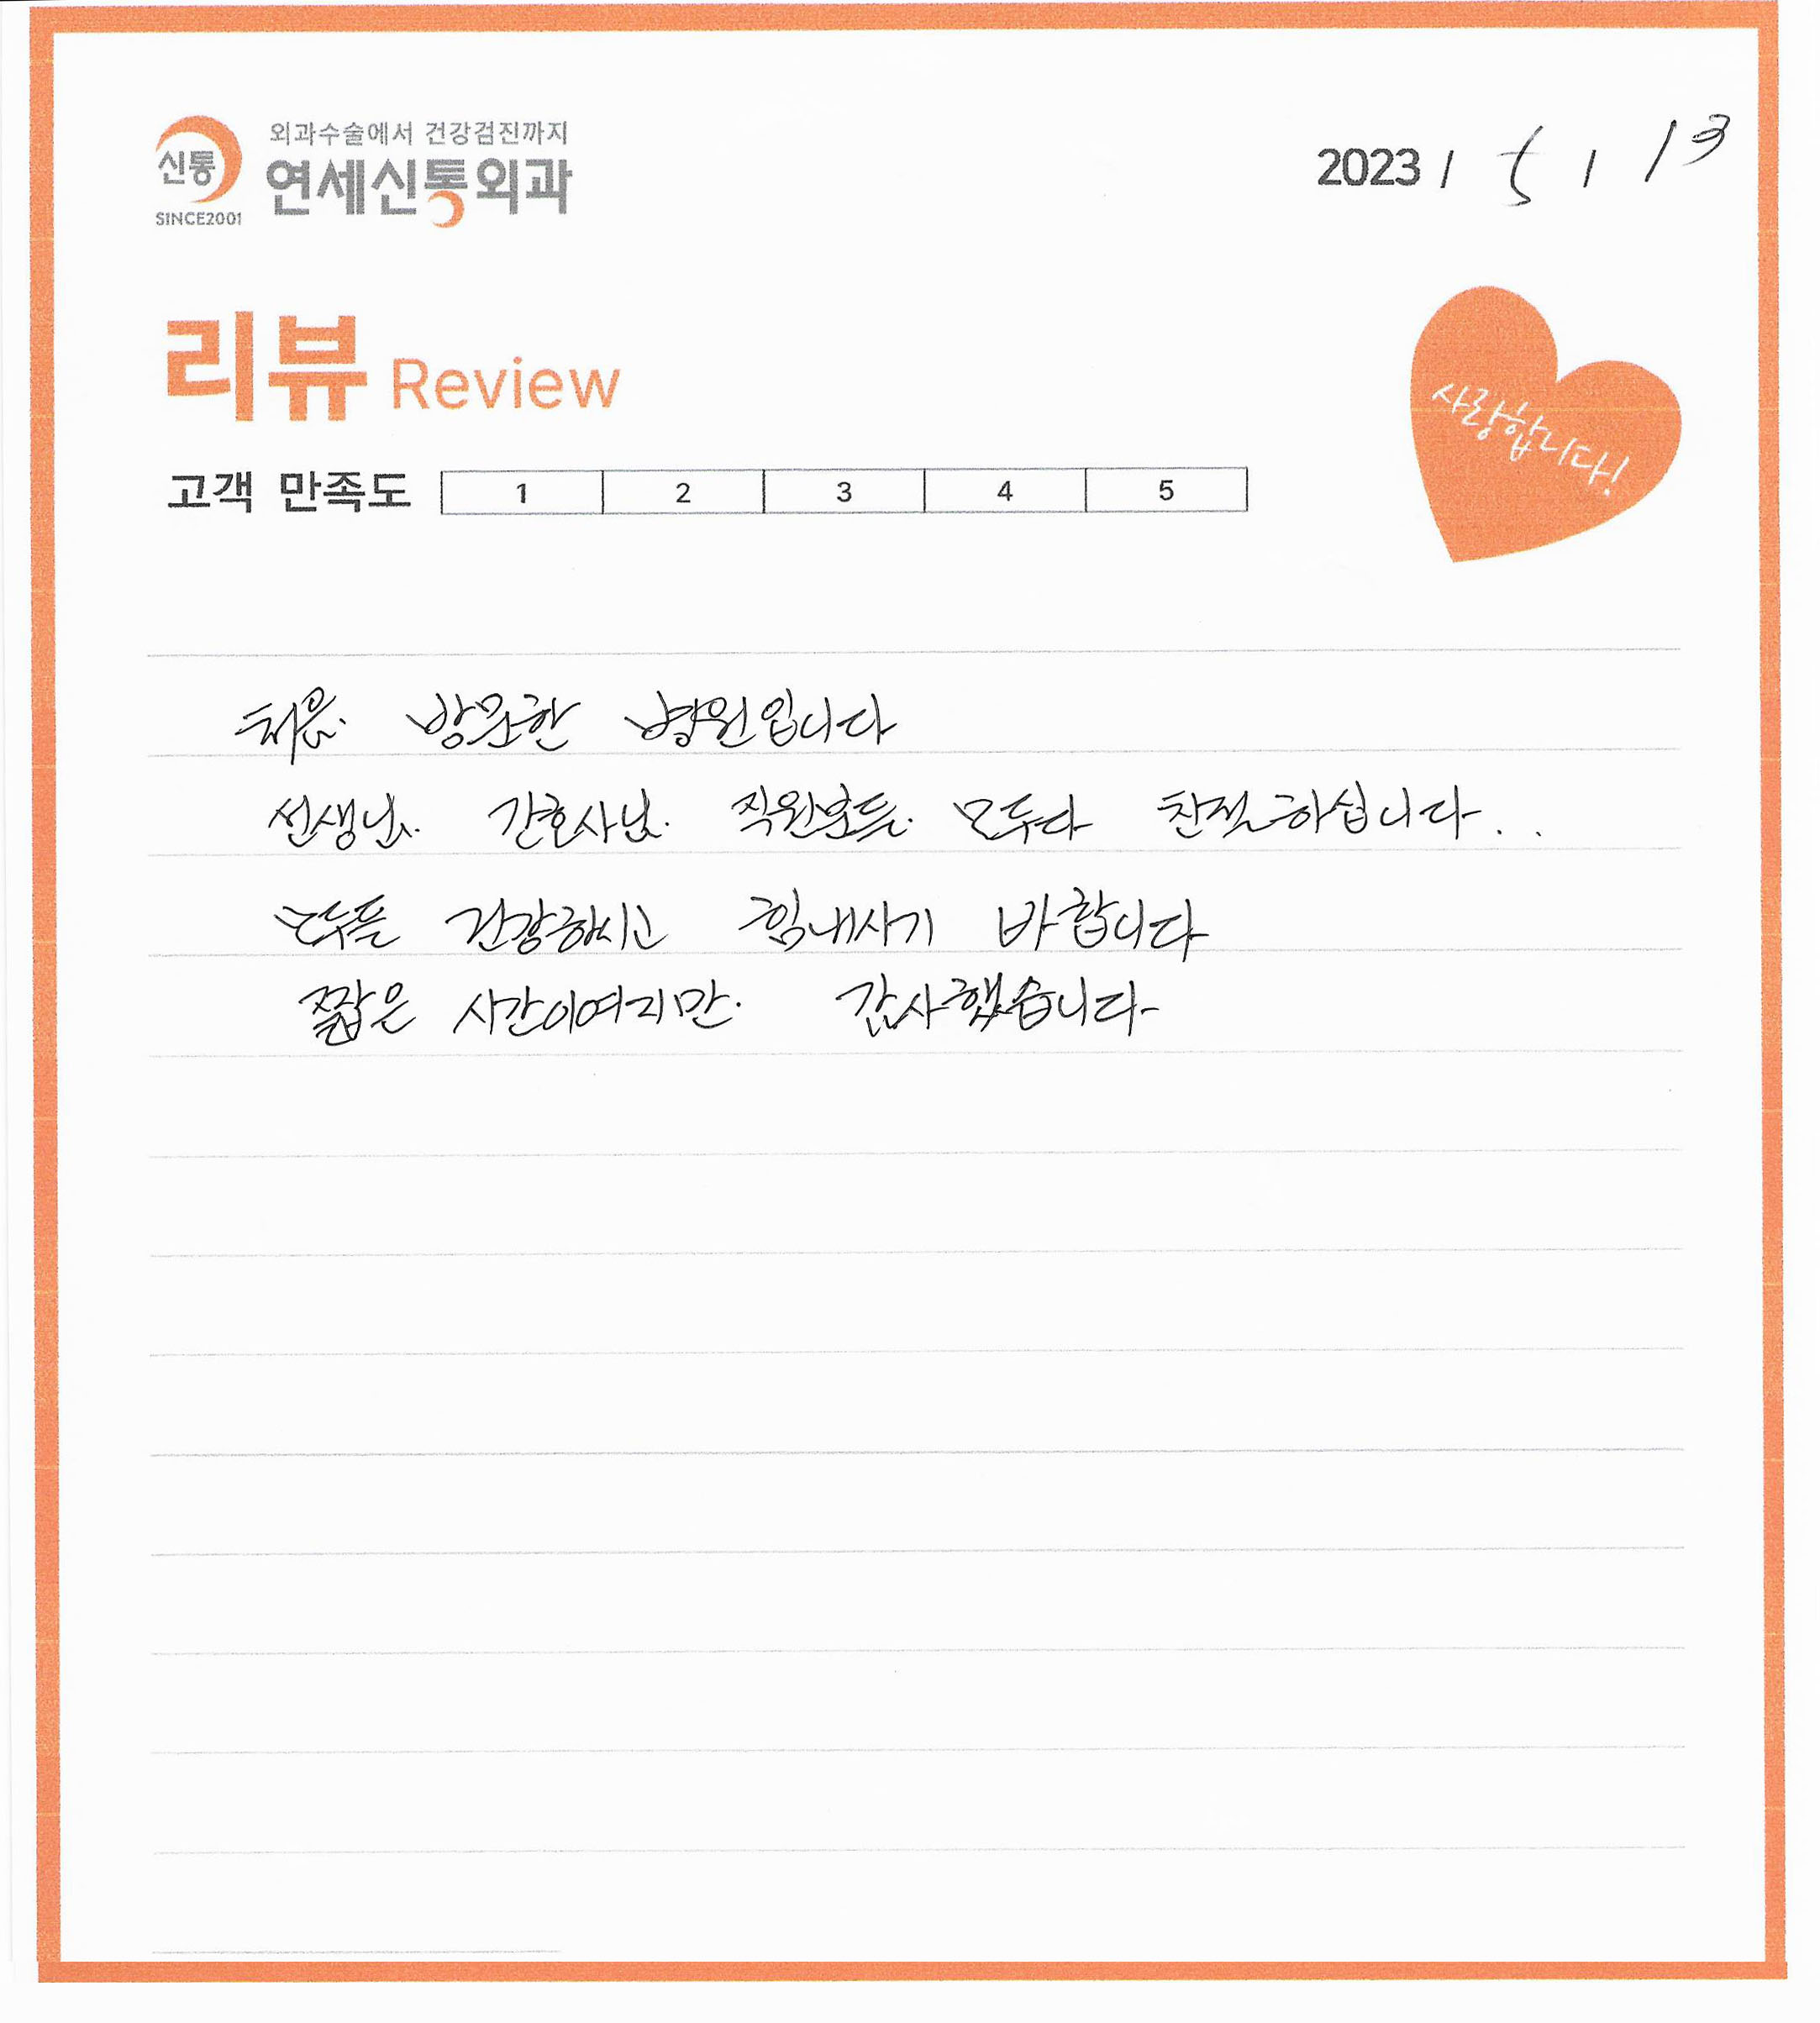 외과수술에서 건강검진까지
신통 연세신통외과
SINCE2001
2023 / 5 / 13
리뷰 Review
사랑합니다!
고객 만족도 1 2 3 4 5
처음. 방문한 병원입니다
선생님. 간호사님. 직원분들. 모두다 친절하십니다..
모두들 건강하시고 힘내시기 바랍니다
짧은 시간이여지만. 감사했습니다